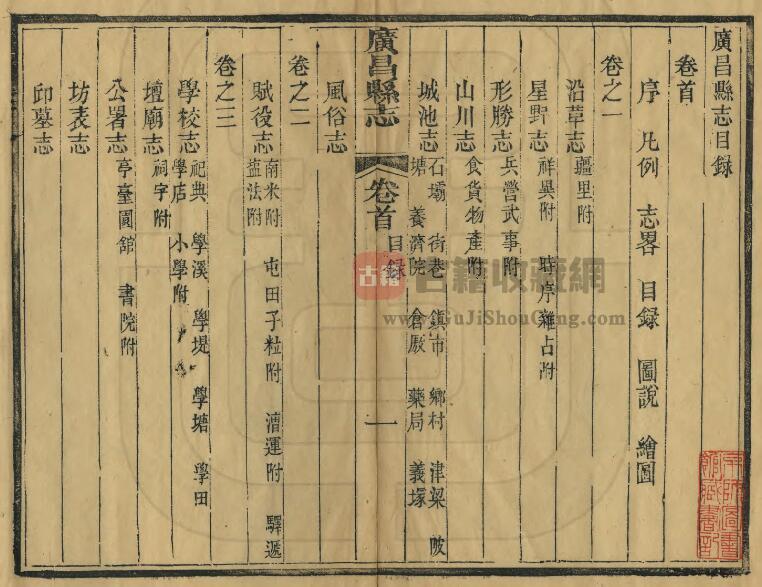 廣昌縣志目録
卷首
序 凡例 志畧 目録 圖說 繪圖
卷之一
沿革志 疆里附
星野志 祥異附 時序雜占附
形勝志 兵營武事附
山川志 食貨物產附
城池志 石壩 街巷 鎮市 鄉村 津梁 陂
塘 養濟院 倉厫 藥局 義塚
廣昌縣志 卷首 目録 一
風俗志
卷之二
賦役志 南米附 屯田子粒附 漕運附 驛遞
鹽法附
卷之三
學校志 祀典 學溪 學堤 學塘 學田
學店 小學附
壇廟志 祠宇附
公署志 亭臺園館 書院附
坊表志
邱墓志
古籍 古籍收藏網
www.GuJiShouCang.com